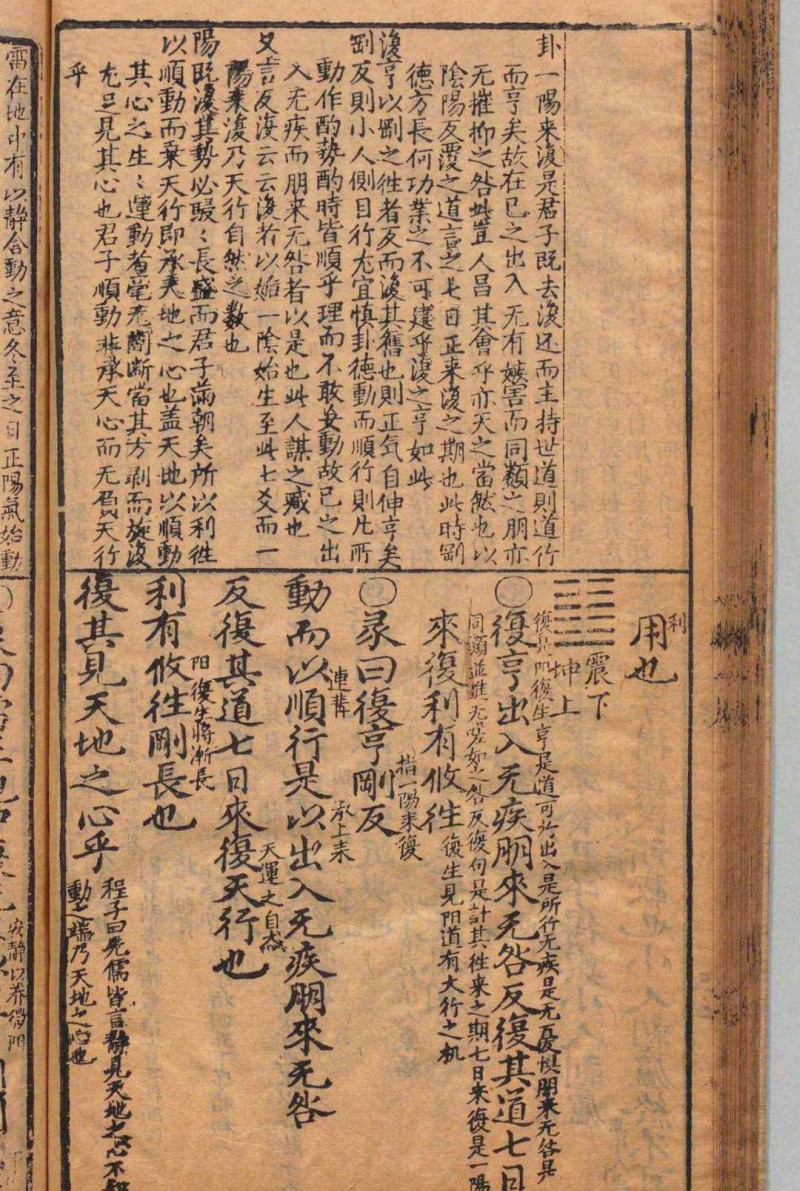 卦一陽来復是君子既去復还而主持世道則道行
而亨矣故在己之出入无有嫉害而同類之朋亦
无摧抑之咎此豈人昌其會乎亦天之當然也以
陰陽反覆之道言之七日正来復之期也此時剛
德方長何功業之不可建乎復之亨如此
復亨以剛之徃者反而復其舊也則正気自伸亨矣
剛反則小人側目行尤宜慎卦德動而順行則凢所
動作酌勢酌時皆順乎理而不敢妄動故己之出
入无疾而朋来无咎者以是也此人謀之臧也
又言反復云云復者以姤一陰始生至此七爻而一
陽来復乃天行自然之數也
陽既復其勢必駸〻長盛而君子滿朝矣所以利徃
以順動而乗天行即承天地之心也盖天地以順動
其心之生〻運動者毫无間断當其方剥而旋復
尤三見其心也君子順動非承天心而无負天行
乎
利
用也
震下
坤上
〇復亨出入无疾朋來无咎反復其道七日
復是陽復生亨是道可亦出入是所行无疾是无憂惧朋来无咎是
同類並進无嗟如之咎反復句是計其徃来之期七日来復是一陽
來復利有攸徃
復生見阳道有大行之机
〇彖曰復亨剛反
指一陽来復
動而以順行是以出入无疾朋來无咎
連講
承上来
反復其道七日來復天行也
天運之自然
利有攸徃剛長也
阳復生將漸長
復其見天地之心乎
程子曰先儒皆言静見天地之心不知
動之端乃天地之心也
雷在地中有以静含動之意冬至之日正陽氣始動
安静以养微阳